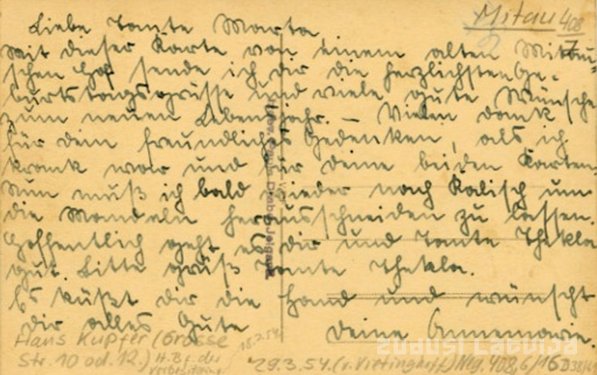 Mitau 408
Liebe Tante Marta
Mit dieser Karte von einem alten Mitau-
schen Hof sende ich dir die herzlichsten Ge-
burtstagsgrüsse und viele gute Wünsche
zum neuen Lebensjahr. – Vielen dank
für dein freundliches Gedenken, als ich
krank war und für deine beiden Karten.
Nun muß ich bald wieder nach Kalisch um
die Mandeln herausschneiden zu lassen.
Hoffentlich geht es dir und Tante Thekla
gut. Bitte grüß Tante Thekla.
Es küßt dir die Hand und wünscht
dir alles Gute Deine Annemarie.
Hans Kupfer (Grosse
Str. 10 od. 12.) H.B.f. der
18.2.54.
29.3.54. (v. Vittinghoff) 408,6/16
zudusi Latvija